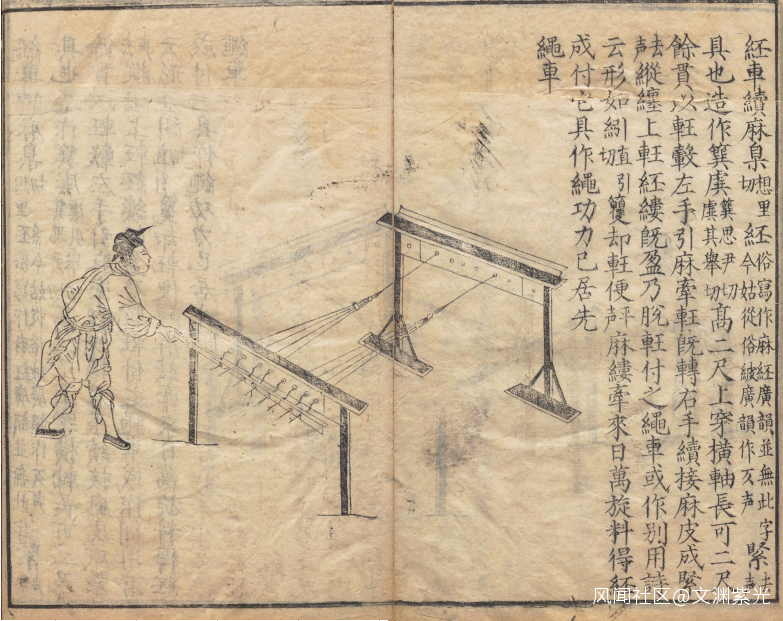 紝車續麻枲想里切紝俗寫作麻紝廣韻並無此字今姑從俗緊廣韻作亥声緊去声
具也造作簨虡簨思尹切虡其舉切高二尺上穿橫軸長可二尺
餘貫以軖轂左手引麻牽軖旣轉右手續接麻皮成緊
去声縱纏上軖紝縷旣盈乃脫軖付之繩車或作別用詩
云形如紖直引切籰却軖便平声麻縷牽來日萬旋料得紝
成付它具作繩功力已居先
繩車
风闻社区@文渊紫光